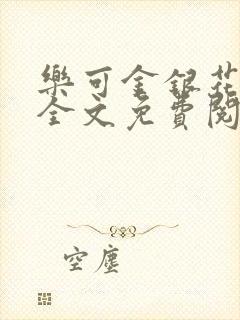 樂可金銀花
全文免費閱
空塵